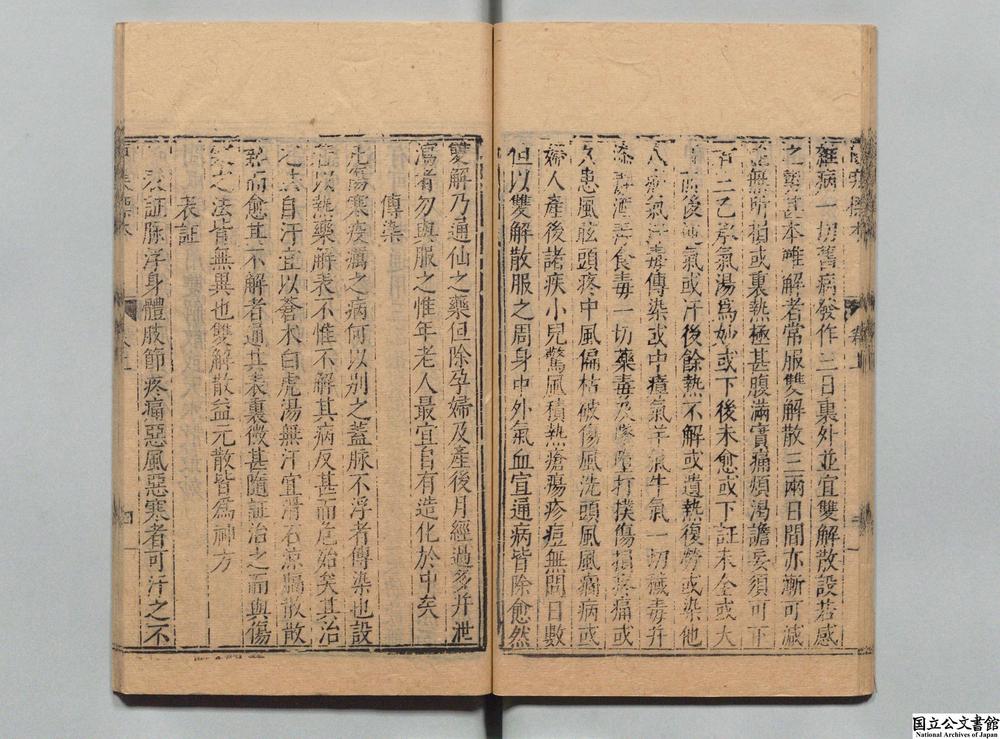 傷寒標本 卷上
雜病一切舊病發作三日裏外並宜雙解散設若感
之勢甚本難解者常服雙解散三兩日間亦漸可減
無所損或裏熱極甚腹滿實痛煩渴譫妄須可下
一二乙承氣湯爲妙或下後未愈或下証未全或大
後 氣或汗後餘熱不解或遺熱復勞或染他
人病氣汗毒傳染或中瘴氣羊氣牛氣一切穢毒并
漆毒酒 食毒一切藥毒及墜墮打撲傷損疼痛或
久患風眩頭疼中風偏枯破傷風洗頭風風癇病或
婦人產後諸疾小兒驚風積熱瘡瘍疹痘無問日數
但以雙解散服之周身中外氣血宣通病皆除愈然
雙解乃通仙之藥但除孕婦及產後月經過多并泄
瀉者勿與服之惟年老人最宜自有造化於中矣
傳染
凡傷寒疫癘之病何以別之蓋脉不浮者傳染也設
以熱藥解表不惟不解其病反甚而危殆矣其治
之法自汗宜以蒼朮白虎湯無汗宜滑石凉膈散散
熱而愈其不解者通其表裏微甚隨証治之而與傷
寒之法皆無異也雙解散益元散皆爲神方
表証
表証脉浮身體肢節疼痛惡風惡寒者可汗之不
國立公文書館
National Archives of Japan